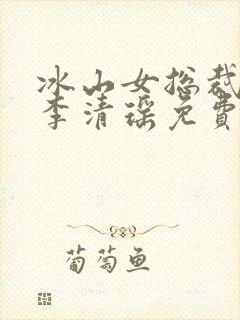 冰山女总裁
李清瑶免费
葡萄鱼